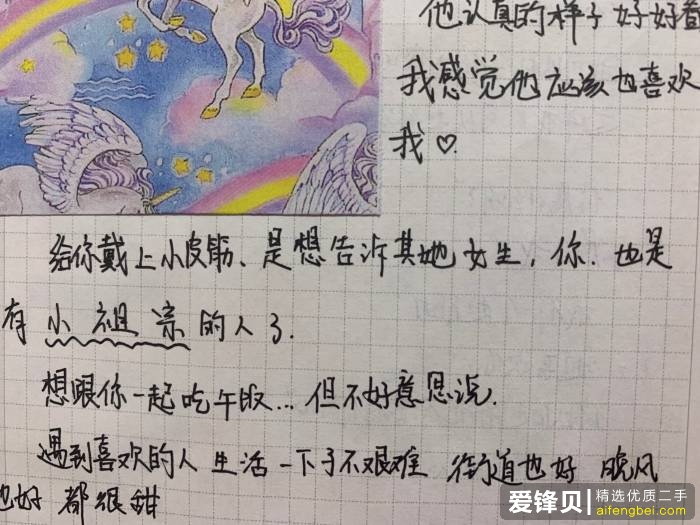 他认真的样子好好看
我感觉他应该也喜欢
我♡
给你戴上小皮筋、是想告诉其她女生，你、也是
有小祖宗的人了.
想跟你一起吃午饭...但不好意思说.
遇到喜欢的人 生活一下子不艰难 街道也好 晚风
也好 都很甜
爱锋贝 精选优质二手
aifengbei.com